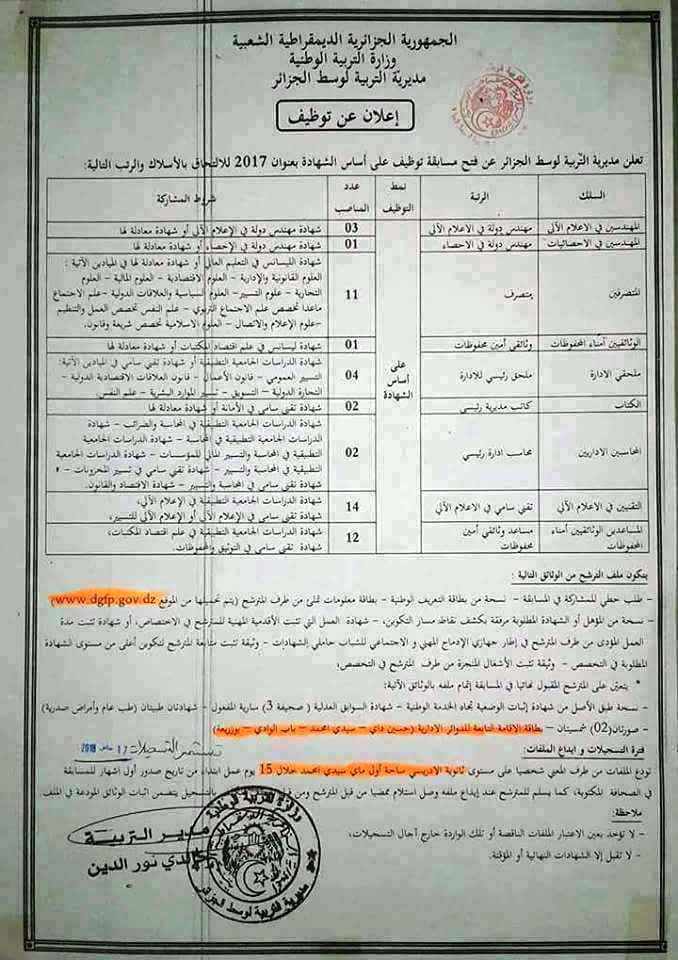 الجمهورية الجزائرية الديمقراطية الشعبية
وزارة التربية الوطنية
مديرية التربية لوسط الجزائر
إعلان عن توظيف
تعلن مديرية التربية لوسط الجزائر عن فتح مسابقة توظيف على أساس الشهادة بعنوان 2017 للالتحاق بالأسلاك والرتب التالية:
السلك الرتبة نمط التوظيف عدد المناصب شروط المشاركة
على أساس الشهادة
المهندسين في الاعلام الآلي مهندس دولة في الاعلام الآلي 03 شهادة مهندس دولة في الإعلام الآلي أو شهادة معادلة لها
المهندسين في الاحصائيات مهندس دولة في الاحصاء 01 شهادة مهندس دولة في الإحصاء أو شهادة معادلة لها
المتصرفين متصرف 11 شهادة الليسانس في التعليم العالي أو شهادة معادلة لها في الميادين الآتية:
العلوم القانونية والإدارية – العلوم الاقتصادية – العلوم المالية – العلوم
التجارية – علوم التسيير– العلوم السياسية والعلاقات الدولية –علم الاجتماع
ماعدا تخصص علم الاجتماع التربوي – علم النفس تخصص العمل والتنظيم
–علوم الإعلام والاتصال – العلوم الاسلامية تخصص شريعة وقانون.
الوثائقيين أمناء المحفوظات وثائقي أمين محفوظات 01 شهادة ليسانس في علم اقتصاد المكتبات أو شهادة معادلة لها
ملحقي الادارة ملحق رئيسي للادارة 04 شهادة الدراسات الجامعية التطبيقية أو شهادة تقني سامي في الميادين الآتية:
التسيير العمومي – قانون الأعمال – قانون العلاقات الاقتصادية الدولية –
التجارة الدولية – التسويق – تسيير الموارد البشرية – علم النفس.
الكتاب كاتب مديرية رئيسي 02 شهادة تقني سامي في الأمانة أو شهادة معادلة لها
المحاسبين الاداريين محاسب ادارة رئيسي 02 شهادة الدراسات الجامعية التطبيقية في المحاسبة والضرائب – شهادة
الدراسات الجامعية التطبيقية في المحاسبة – شهادة الدراسات الجامعية
التطبيقية في المحاسبة والتسيير المالي للمؤسسات – شهادة الدراسات الجامعية
التطبيقية في المحاسبة والتسيير – شهادة تقني سامي في تسيير المخزونات –
شهادة تقني سامي في المحاسبة والتسيير – شهادة الاقتصاد والقانون.
التقنيين في الاعلام الآلي تقني سامي في الاعلام الآلي 14 شهادة الدراسات الجامعية التطبيقية في الإعلام الآلي،
شهادة تقني سامي في الإعلام الآلي أو الإعلام الآلي للتسيير،
المساعدين الوثائقيين أمناء المحفوظات مساعد وثائقي أمين محفوظات 12 شهادة الدراسات الجامعية التطبيقية في علم اقتصاد المكتبات،
شهادة تقني سامي في التوثيق والمحفوظات.
يتكون ملف الترشح من الوثائق التالية :
– طلب خطي للمشاركة في المسابقة – نسخة من بطاقة التعريف الوطنية – بطاقة معلومات تملئ من طرف المترشح (يتم تحميلها من الموقع www.dgfp.gov.dz)
– نسخة من المؤهل أو الشهادة المطلوبة مرفقة بكشف نقاط مسار التكوين، – شهادة العمل التي تثبت الأقدمية المهنية للمترشح في الاختصاص، أو شهادة تثبت مدة
العمل المؤدى من طرف المترشح في إطار جهازي الإدماج المهني و الاجتماعي للشباب حاملي الشهادات – وثيقة تثبت متابعة المترشح لتكوين أعلى من مستوى الشهادة
المطلوبة في التخصص – وثيقة تثبت الأشغال المنجزة من طرف المترشح في التخصص،
* يتعين على المترشح المقبول نهائيا في المسابقة إتمام ملفه بالوثائق الآتية:
– نسخة طبق الأصل من شهادة إثبات الوضعية تجاه الخدمة الوطنية – شهادة السوابق العدلية ( صحيفة 3) سارية المفعول – شهادتان طبيتان (طب عام وأمراض صدرية)
– صورتان(02) شمسيتان – بطاقة الاقامة التابعة للدوائر الادارية (حسين داي – سيدي امحمد – باب الوادي – بوزريعة)
فترة التسجيلات و ايداع الملفات:
تستمر التسجيلات 2018
تودع الملفات من طرف المعني شخصيا على مستوى ثانوية الادريسي ساحة أول ماي سيدي امحمد خلال 15 يوم عمل ابتداء من تاريخ صدور أول اشهار للمسابقة
في الصحافة المكتوبة، كما يسلم للمترشح عند إيداع ملفه وصل استلام ممضيا من قبل المترشح ومن قبل بالتسجيل يتضمن اثبات الوثائق المودعة في الملف
ملاحظة:
– لا تؤخذ بعين الاعتبار الملفات الناقصة أو تلك الواردة خارج آجال التسجيلات،
– لا تقبل إلا الشهادات النهائية أو المؤقتة.
مدير التربية
خالدي نور الدين
وزارة التربية الوطنية
مديرية التربية لوسط الجزائر